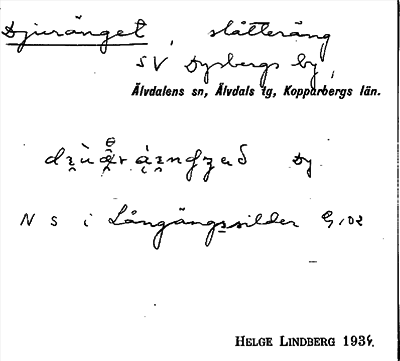 Djuränget, slåtteräng
SV Dysbergs by,
Älvdalens sn, Älvdals tg, Kopparbergs län.
Dy
N S i Långängssilder
HELGE LINDBERG 1934.